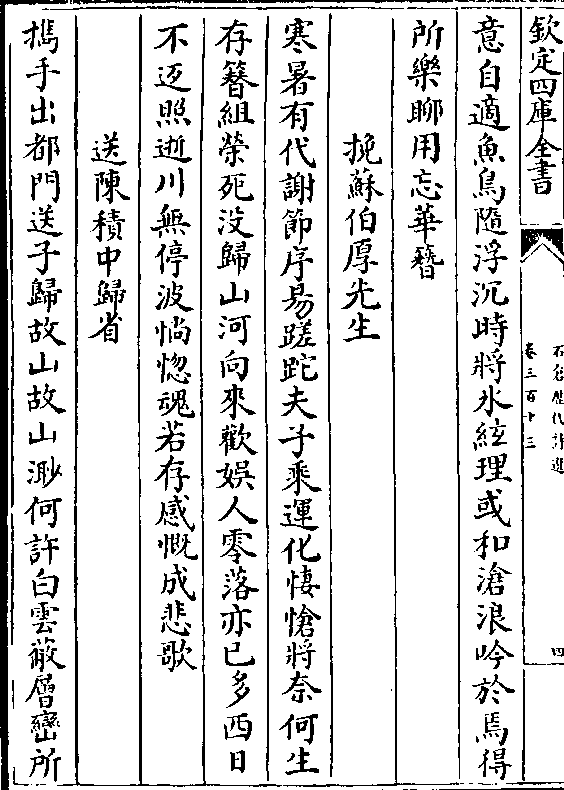 欽定四庫全書
石倉歷代詩選
卷三百十三
四
意自適魚鳥隨浮沉時將氷絃理或和滄浪吟於焉得
所樂聊用忘華簪
挽蘇伯厚先生
寒暑有代謝節序易蹉跎夫子乘運化悽愴將奈何生
存簪組榮死没歸山河向來歡娱人零落亦已多西日
不返照逝川無停波惝惚魂若存感慨成悲歌
送陳積中歸省
攜手出都門送子歸故山故山渺何許白雲蔽層巒所